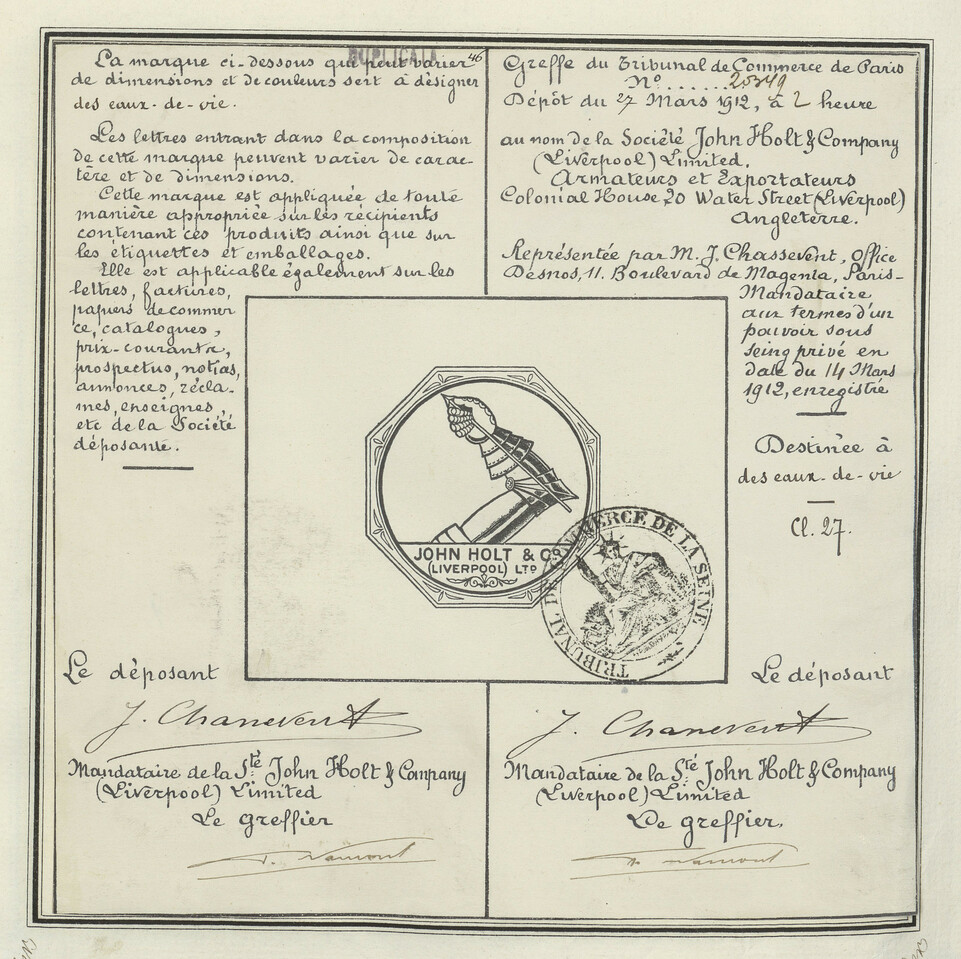 DUPLICATA
La marque ci-dessous qui peut varier 46
de dimensions et de couleurs sert à désigner
des eaux-de-vie.
Les lettres entrant dans la composition
de cette marque peuvent varier de carac-
tère et de dimensions.
Cette marque est appliquée de toute
manière appropriée sur les récipients
contenant ces produits ainsi que sur
les étiquettes et emballages.
Elle est applicable également sur les
lettres, factures,
papiers de commer
ce, catalogues,
prix-courants,
prospectus, notias,
annonces, récla-
mes, enseignes,
etc de la Société
déposante.
Greffe du Tribunal de Commerce de Paris
N°
Dépôt du 27 Mars 1912, à 2 heure
au nom de la Société John Holt & Company
(Liverpool) Limited.
Armateurs et Exportateurs
Colonial House 20 Water Street (Liverpool)
Angleterre.
Représentée par M. J. Chassevent, Office
Desnos, 11. Boulevard de Magenta, Paris-
Mandataire
aux termes d'un
pouvoir sous
seing privé en
date du 14 Mars
1912, enregistré
Destinée à
des eaux-de-vie
Cl. 27.
JOHN HOLT & CO.
(LIVERPOOL) LTD
TRIBUNAL DE COMMERCE DE LA SEINE
Le déposant
J. Chassevent
Mandataire de la Sté John Holt & Company
(Liverpool) Limited
Le greffier
Le déposant
J. Chassevent
Mandataire de la Sté John Holt & Company
(Liverpool) Limited
Le greffier.